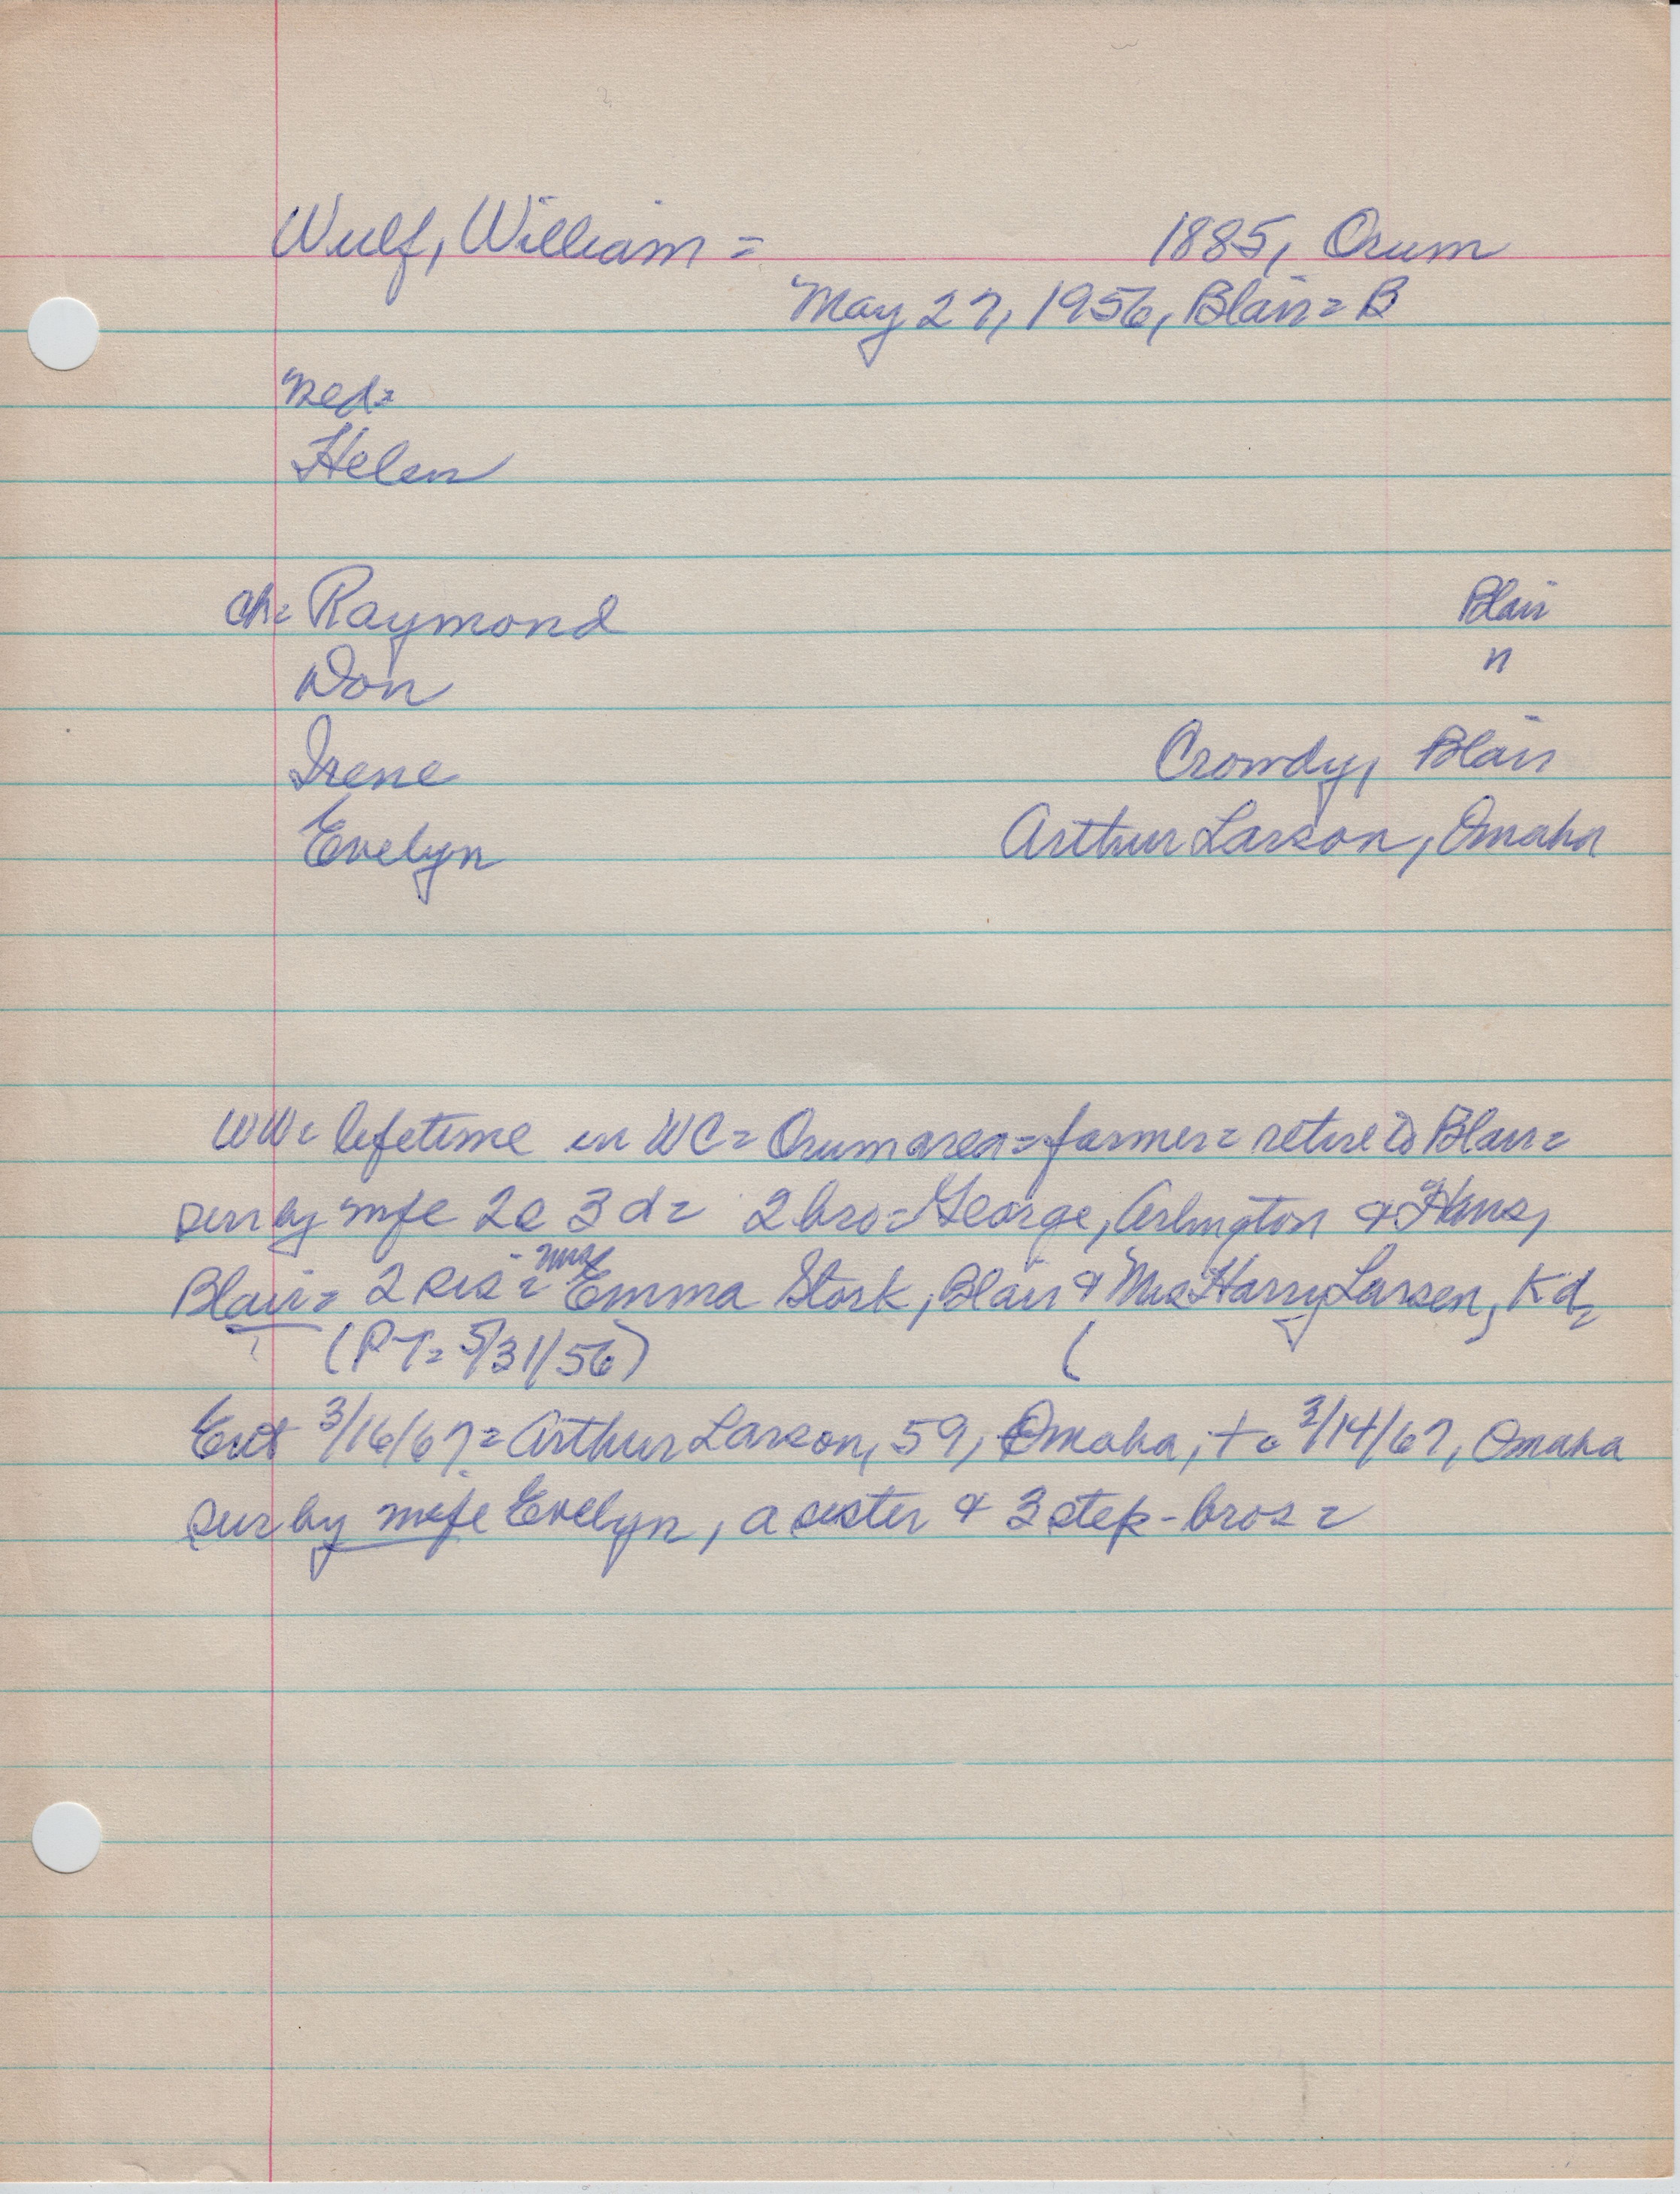 Wulf, William = 1885, Orum
May 27, 1956, Blair = B
med=
Helen
ch= Raymond Blair
Don "
Irene Crowdy, Blair
Evelyn Arthur Larson, Omaha
WW= lifetime in WC= Orum area= farmer= retire to Blair=
sur by wife 2s 3d= 2 bro= George, Arlington & Hans,
Blair= 2 sis= Mrs Emma Stork, Blair & Mrs Harry Larsen, Kd=
(PT= 5/31/56) (
Ent 3/16/67= Arthur Larson, 59, Omaha, + 3/14/67, Omaha
sur by wife Evelyn, a sister & 3 step-bros=